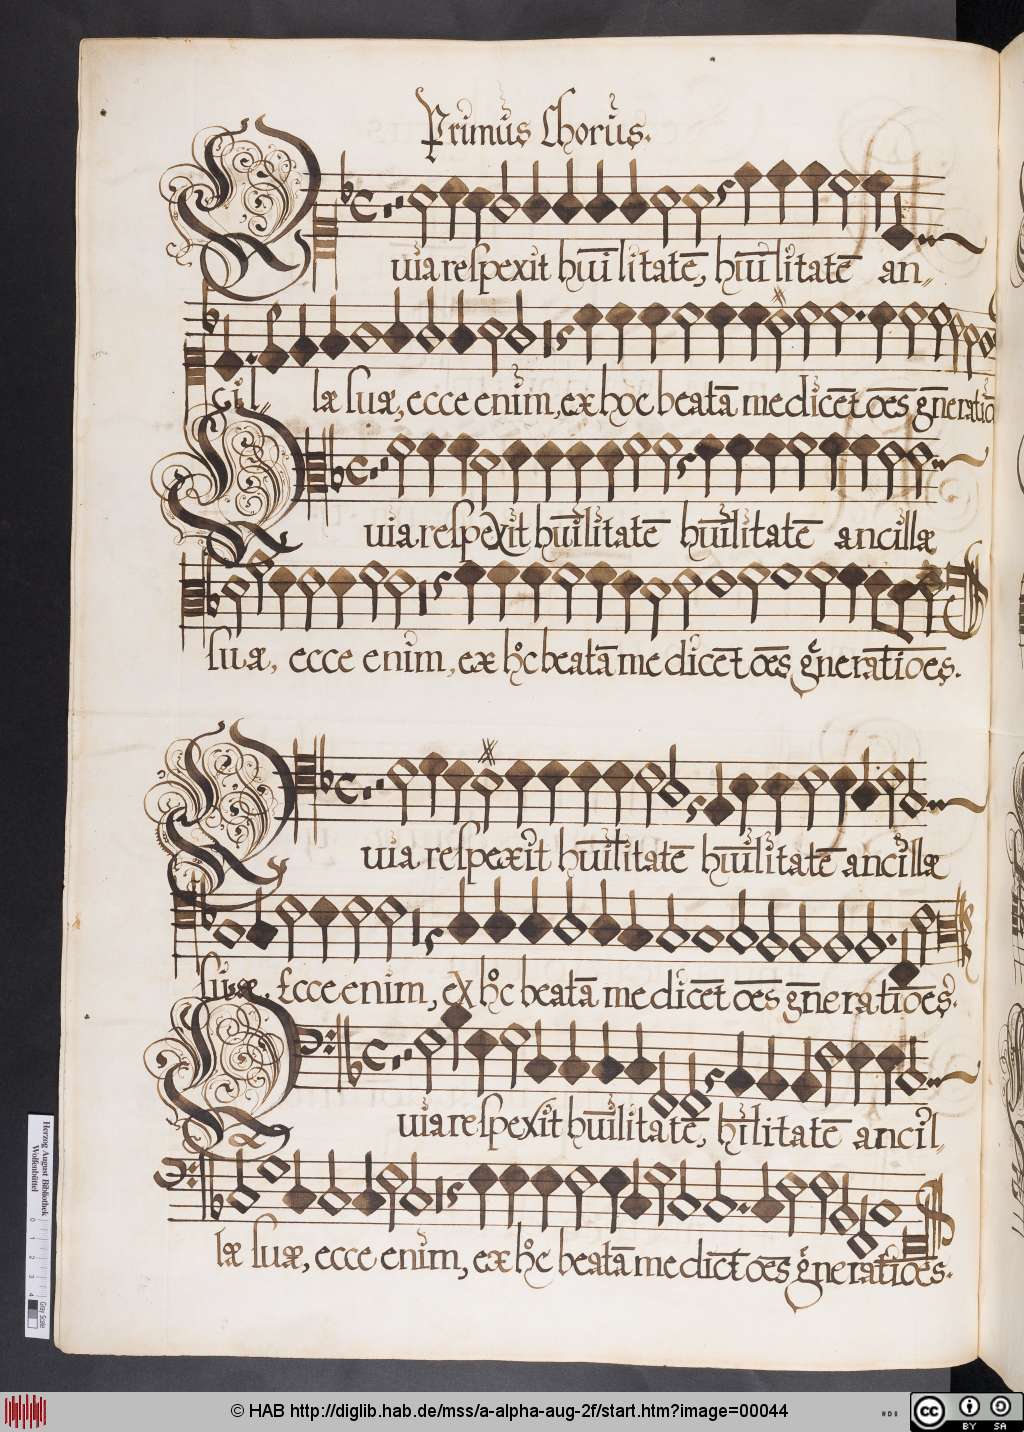 Primus Chorus.
Quia respexit hūilitatē, hūilitatē an-
cil- læ suæ, ecce enim, ex hoc beatā me dicēt oēs gn̄eratiō
Quia respexit hūilitatē hūilitatē ancillæ
suæ, ecce enim, ex hoc beatā me dicēt oēs gn̄eratiōes.
Quia respexit hūilitatē hūilitatē ancillæ
suæ, Ecce enim, ex hoc beatā me dicēt oēs gn̄eratiōes.
Quia respexit hūilitatē, hūilitatē ancil-
læ suæ, ecce enim, ex hoc beatā me dicēt oēs gn̄eratiōes.
Herzog August Bibliothek
Wolfenbüttel
0 1 2 3 4
© HAB http://diglib.hab.de/mss/a-alpha-aug-2f/start.htm?image=00044
cc BY SA